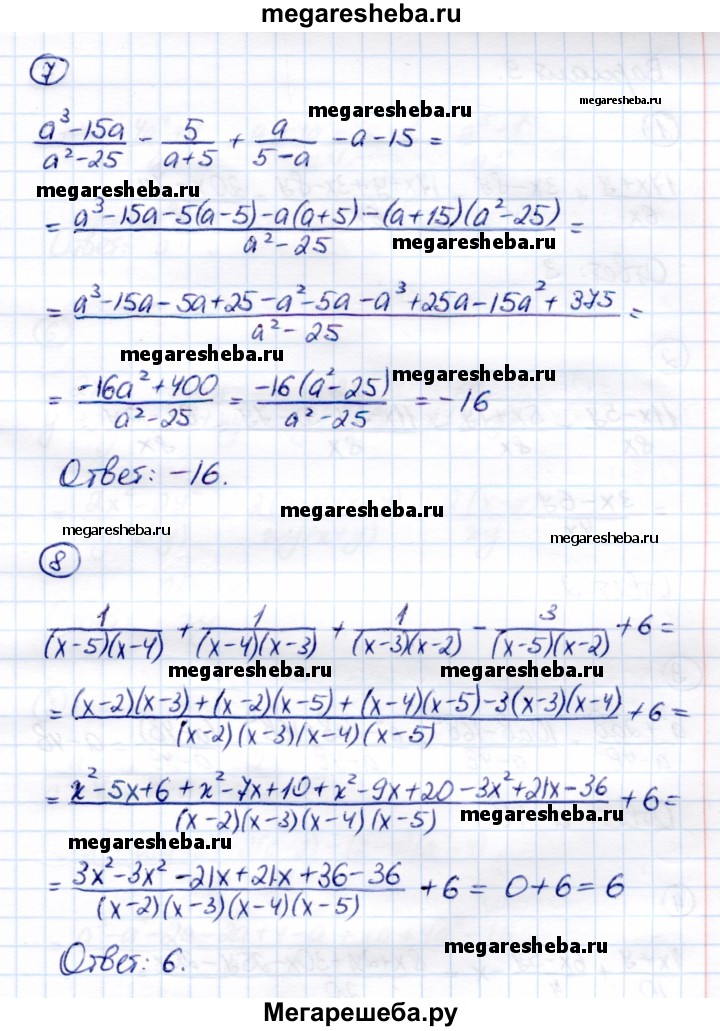 megaresheba.ru
7
megaresheba.ru
megaresheba.ru
(a³-15a)/(a²-25) - 5/(a+5) + a/(5-a) - a - 15 =
megaresheba.ru
= (a³-15a-5(a-5)-a(a+5)-(a+15)(a²-25))/(a²-25) =
megaresheba.ru
= (a³-15a-5a+25-a²-5a-a³+25a-15a²+375)/(a²-25) =
megaresheba.ru
megaresheba.ru
= (-16a²+400)/(a²-25) = (-16(a²-25))/(a²-25) = -16
Ответ: -16.
megaresheba.ru
megaresheba.ru
megaresheba.ru
8
1/((x-5)(x-4)) + 1/((x-4)(x-3)) + 1/((x-3)(x-2)) - 3/((x-5)(x-2)) + 6 =
megaresheba.ru
megaresheba.ru
= ((x-2)(x-3)+(x-2)(x-5)+(x-4)(x-5)-3(x-3)(x-4))/((x-2)(x-3)(x-4)(x-5)) + 6 =
= (x²-5x+6+x²-7x+10+x²-9x+20-3x²+21x-36)/((x-2)(x-3)(x-4)(x-5)) + 6 =
megaresheba.ru
megaresheba.ru
= (3x²-3x²-21x+21x+36-36)/((x-2)(x-3)(x-4)(x-5)) + 6 = 0+6 = 6
megaresheba.ru
Ответ: 6.
Мегарешеба.ру